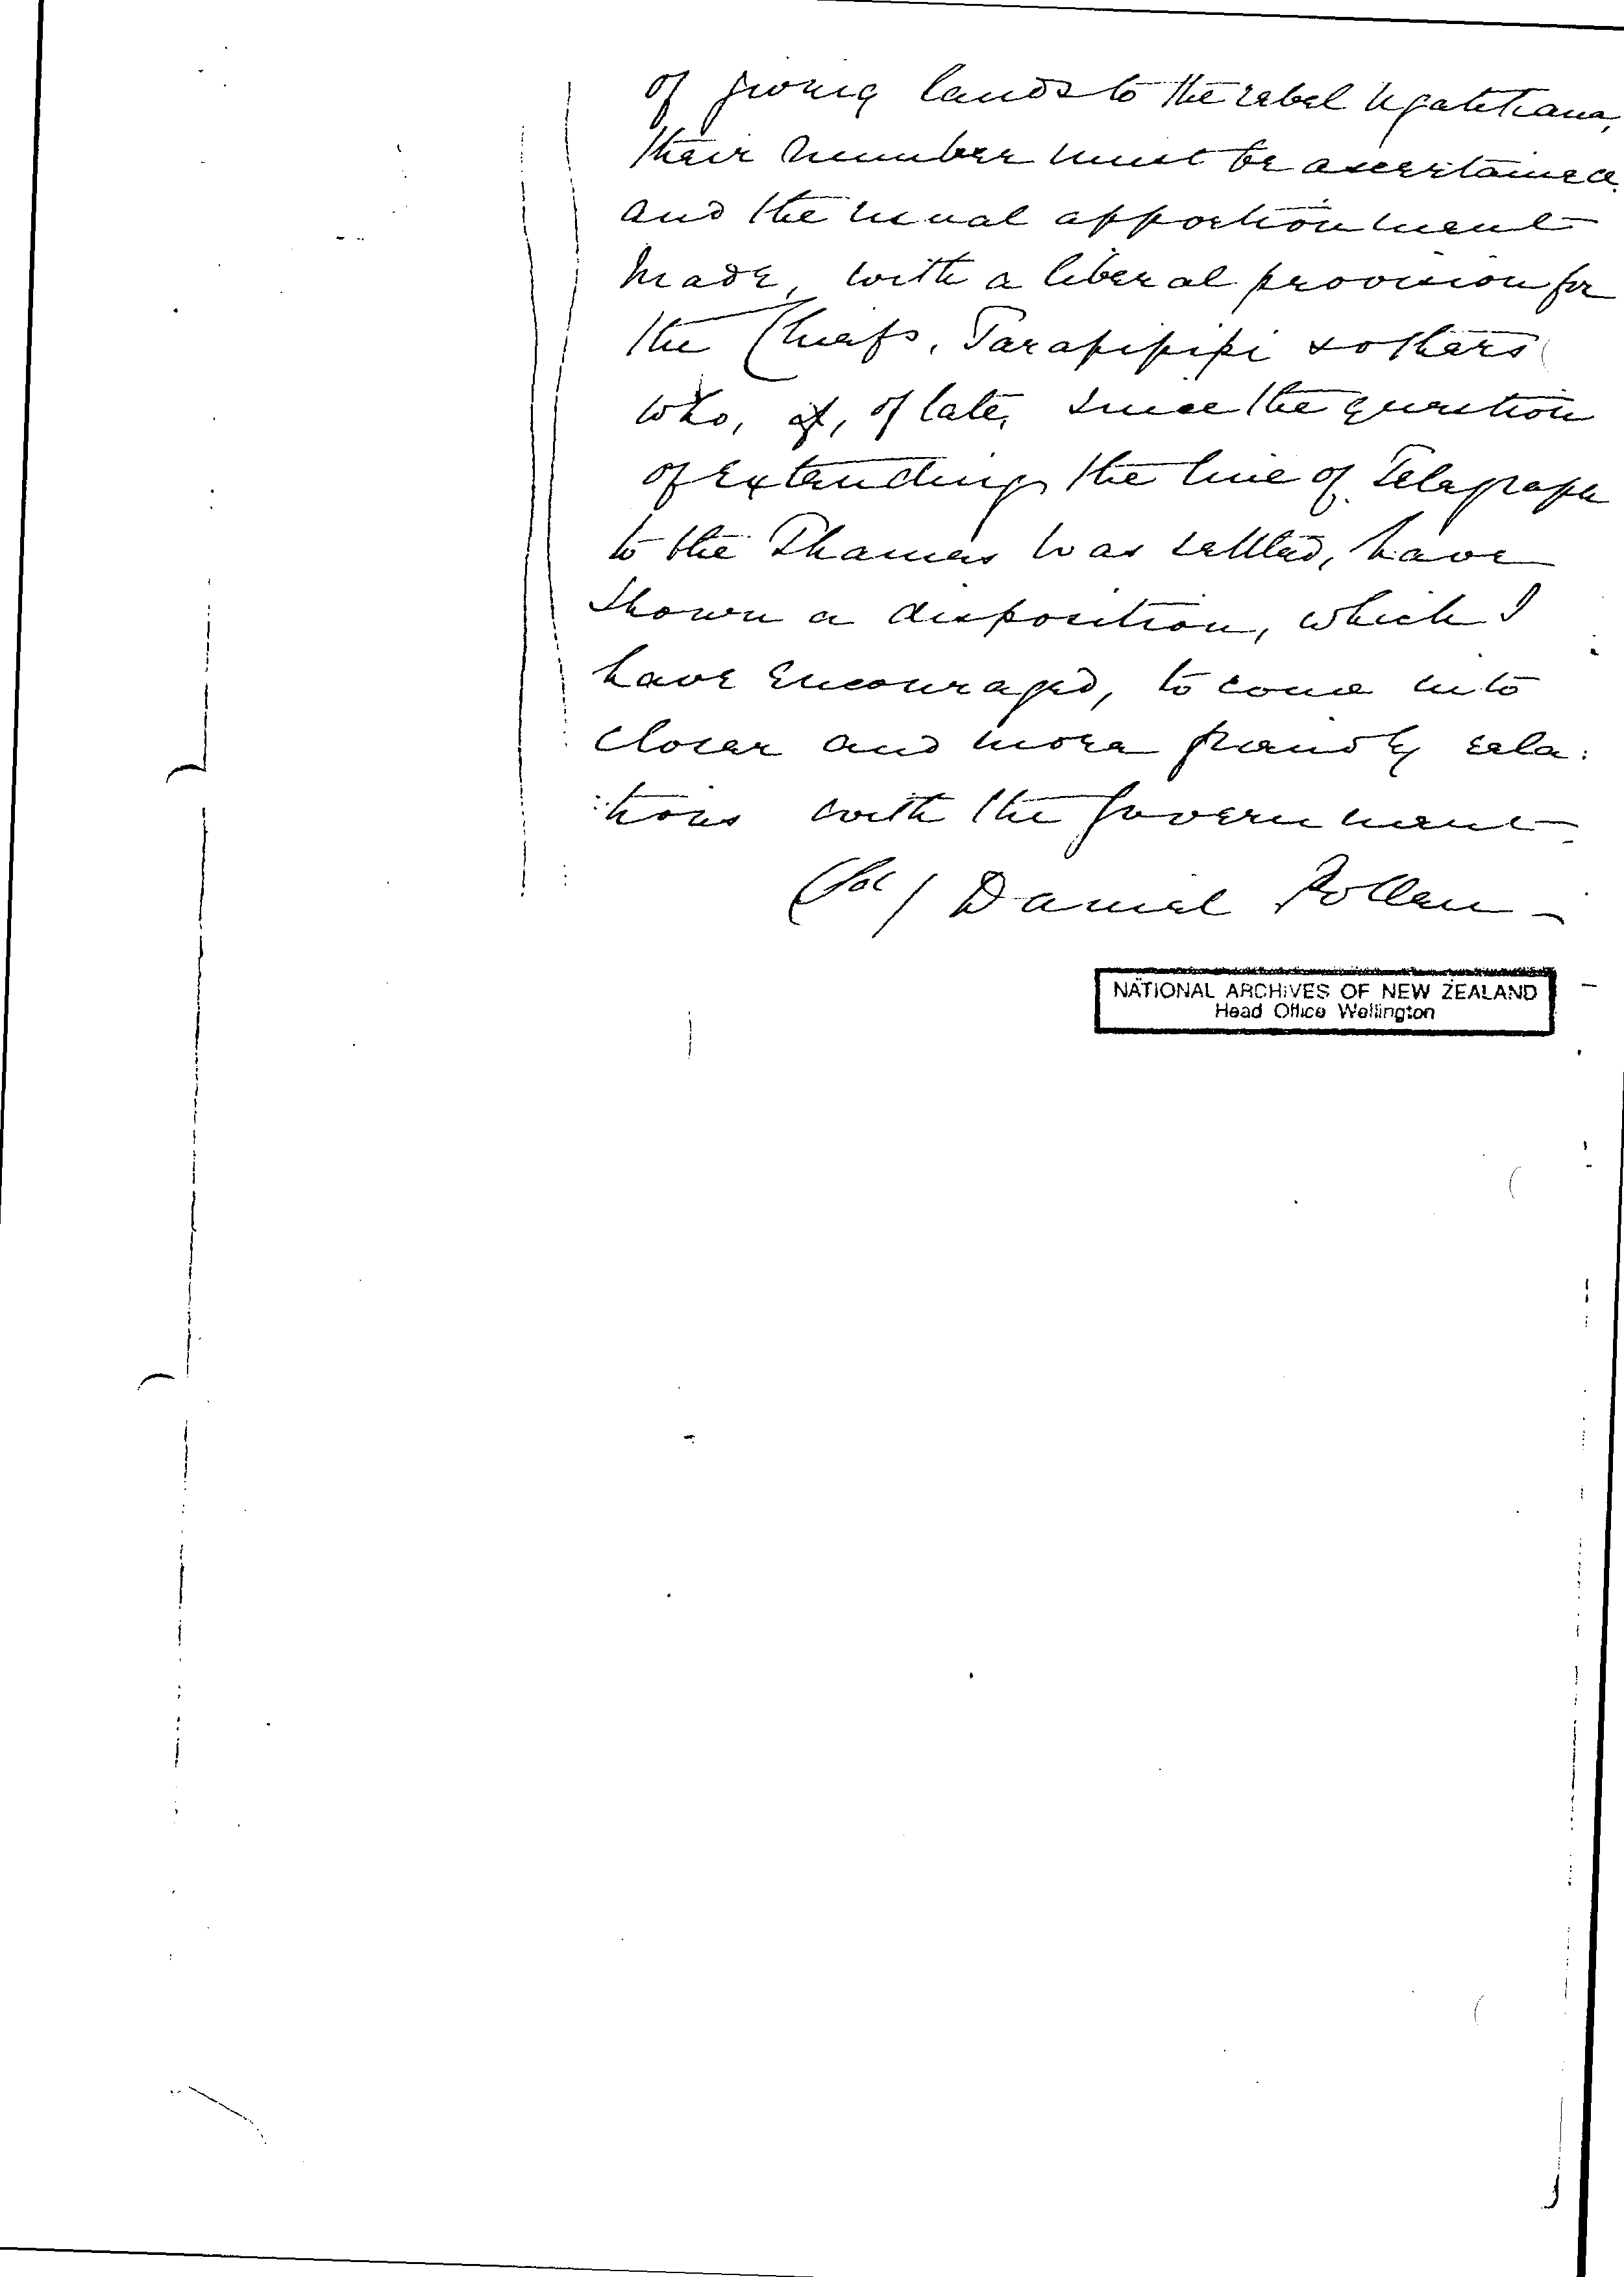 of giving lands to the rebel Ngatihaua,
their number must be ascertained
and the usual apportionment
made, with a liberal provision for
the Chiefs, Tarapipipi & others
who, of late, since the question
of extending the line of Telegraph
to the Thames was settled, have
shown a disposition, which I
have encouraged, to come into
closer and more friendly rela:
:tions with the Government
(Sd/ Daniel Pollen -
NATIONAL ARCHIVES OF NEW ZEALAND
Head Office Wellington